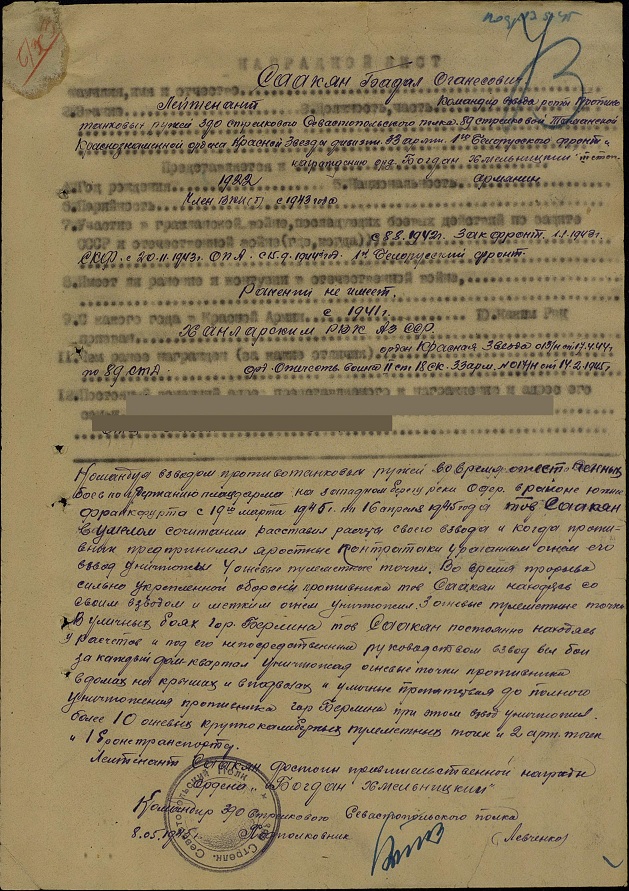 НАГРАДНОЙ ЛИСТ
Фамилия, имя и отчество Саакян Бадал Оганесович
2. Звание Лейтенант 3. Должность, часть Командир взвода роты Противо
танковых ружей 390 стрелкового Севастопольского полка 89 стрелковой Таманской
Краснознаменной ордена Красной Звезды дивизии 33 армии 1го Белорусского фронта
Представляется к награждению орд. "Богдан Хмельницкий"
4. Год рождения 1922 5. Национальность Армянин
6. Партийность Член ВКП(б) с 1943 года
7. Участие в гражданской войне, последующих боевых действий по защите
СССР и отечественной войне (где, когда) с 8.8.1942г. Закфронт.
СКФ. с 20.11.1943г. О.П.А. 1й Белорусский фронт.
8. Имеет ли ранения и контузии в отечественной войне,
Ранений не имеет.
9. С какого года в Красной Армии с 1941г. 10. Каким РВК
призван Ханларским РВК Аз ССР.
11. Чем ранее награжден (за какие отличия) орден Красная Звезда 17.4.44г.
по 89 СТД орд. Отечеств войны II ст 18ск. 33арм. №014/н от 17.2.1945г
12. Постоянный адрес представляемого к награждению и адрес его
семьи
Командуя взводом противотанковых ружей во время ожесточенных
боев по удержанию плацдарма на западном берегу реки Одер в районе южнее
Франкфурта с 19го марта 1945г. по 16 апреля 1945 года тов Саакян
в умелом сочитании расставил расчеты своего взвода и когда проти-
вник предпринимал яростные контратаки ураганным огнем его
взвод уничтожил 4 огневые пулеметные точки. Во время прорыва
сильно укрепленной обороны противника тов Саакян находясь со
своим взводом и метким огнем уничтожил 3 огневые пулеметные точки
В уличных боях гор. Берлина тов Саакян постоянно находясь
у расчетов и под его непосредственным руководством взвод вел бои
за каждый дом-квартал уничтожая огневые точки противника
в домах на крышах и в подвалах и уличные до полного
уничтожения противника гор Берлина при этом взвод уничтожил
более 10 огневых крупнокалиберных пулеметных точек и 2 арт. точек
и 1 бронетранспортер.
Лейтенант Саакян достоин правительственной награды
Ордена "Богдан Хмельницкий"
Командир 390 Стрелкового Севастопольского полка
8.05.1945г. Подполковник (Левченко)